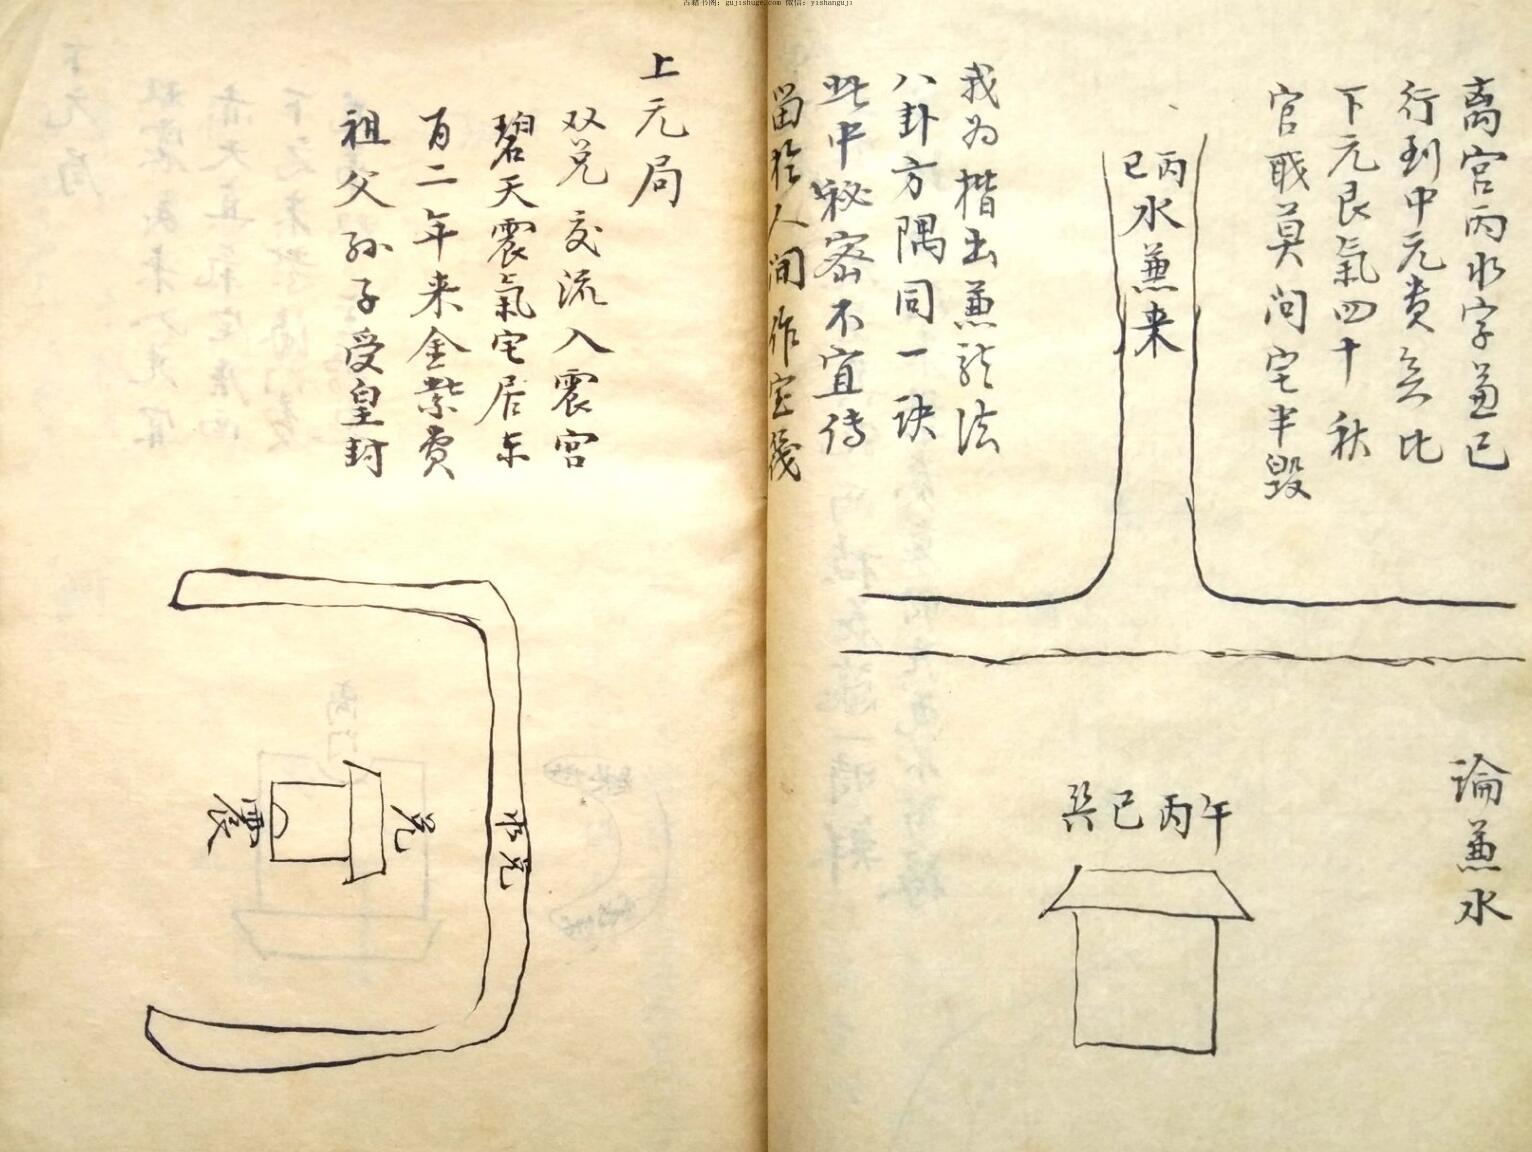 古籍书阁：gujishuge.com 微信：yishanguji
离宫丙水字兼巳
行到中元贵无比
下元艮氣四十秋
官戢莫问宅半毁
丙巳
水兼来
我为楷出兼龍法
八卦方隅同一诀
此中秘密不宜传
留於人间作宝筏
論兼水
巽巳丙午
上元局
双兑交流入震宫
碧天震氣宅居东
百二年来金紫贵
祖父孙子受皇封
水兑
兑
震